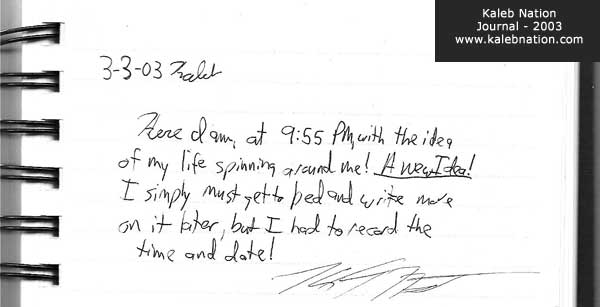 Kaleb Nation
Journal - 2003
www.kalebnation.com
3-3-03 Kaleb
Here I am, at 9:55 PM, with the idea
of my life spinning around me! A new Idea!
I simply must get to bed and write more
on it later, but I had to record the
time and date!